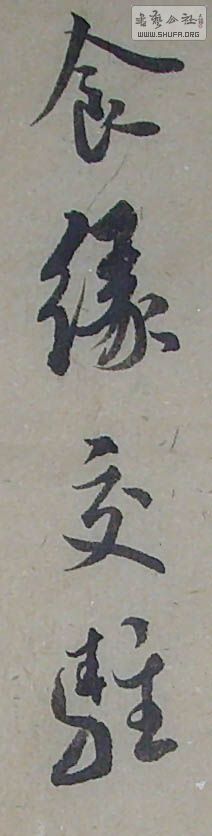 書藝公社
WWW.SHUFA.ORG
食緣交駐